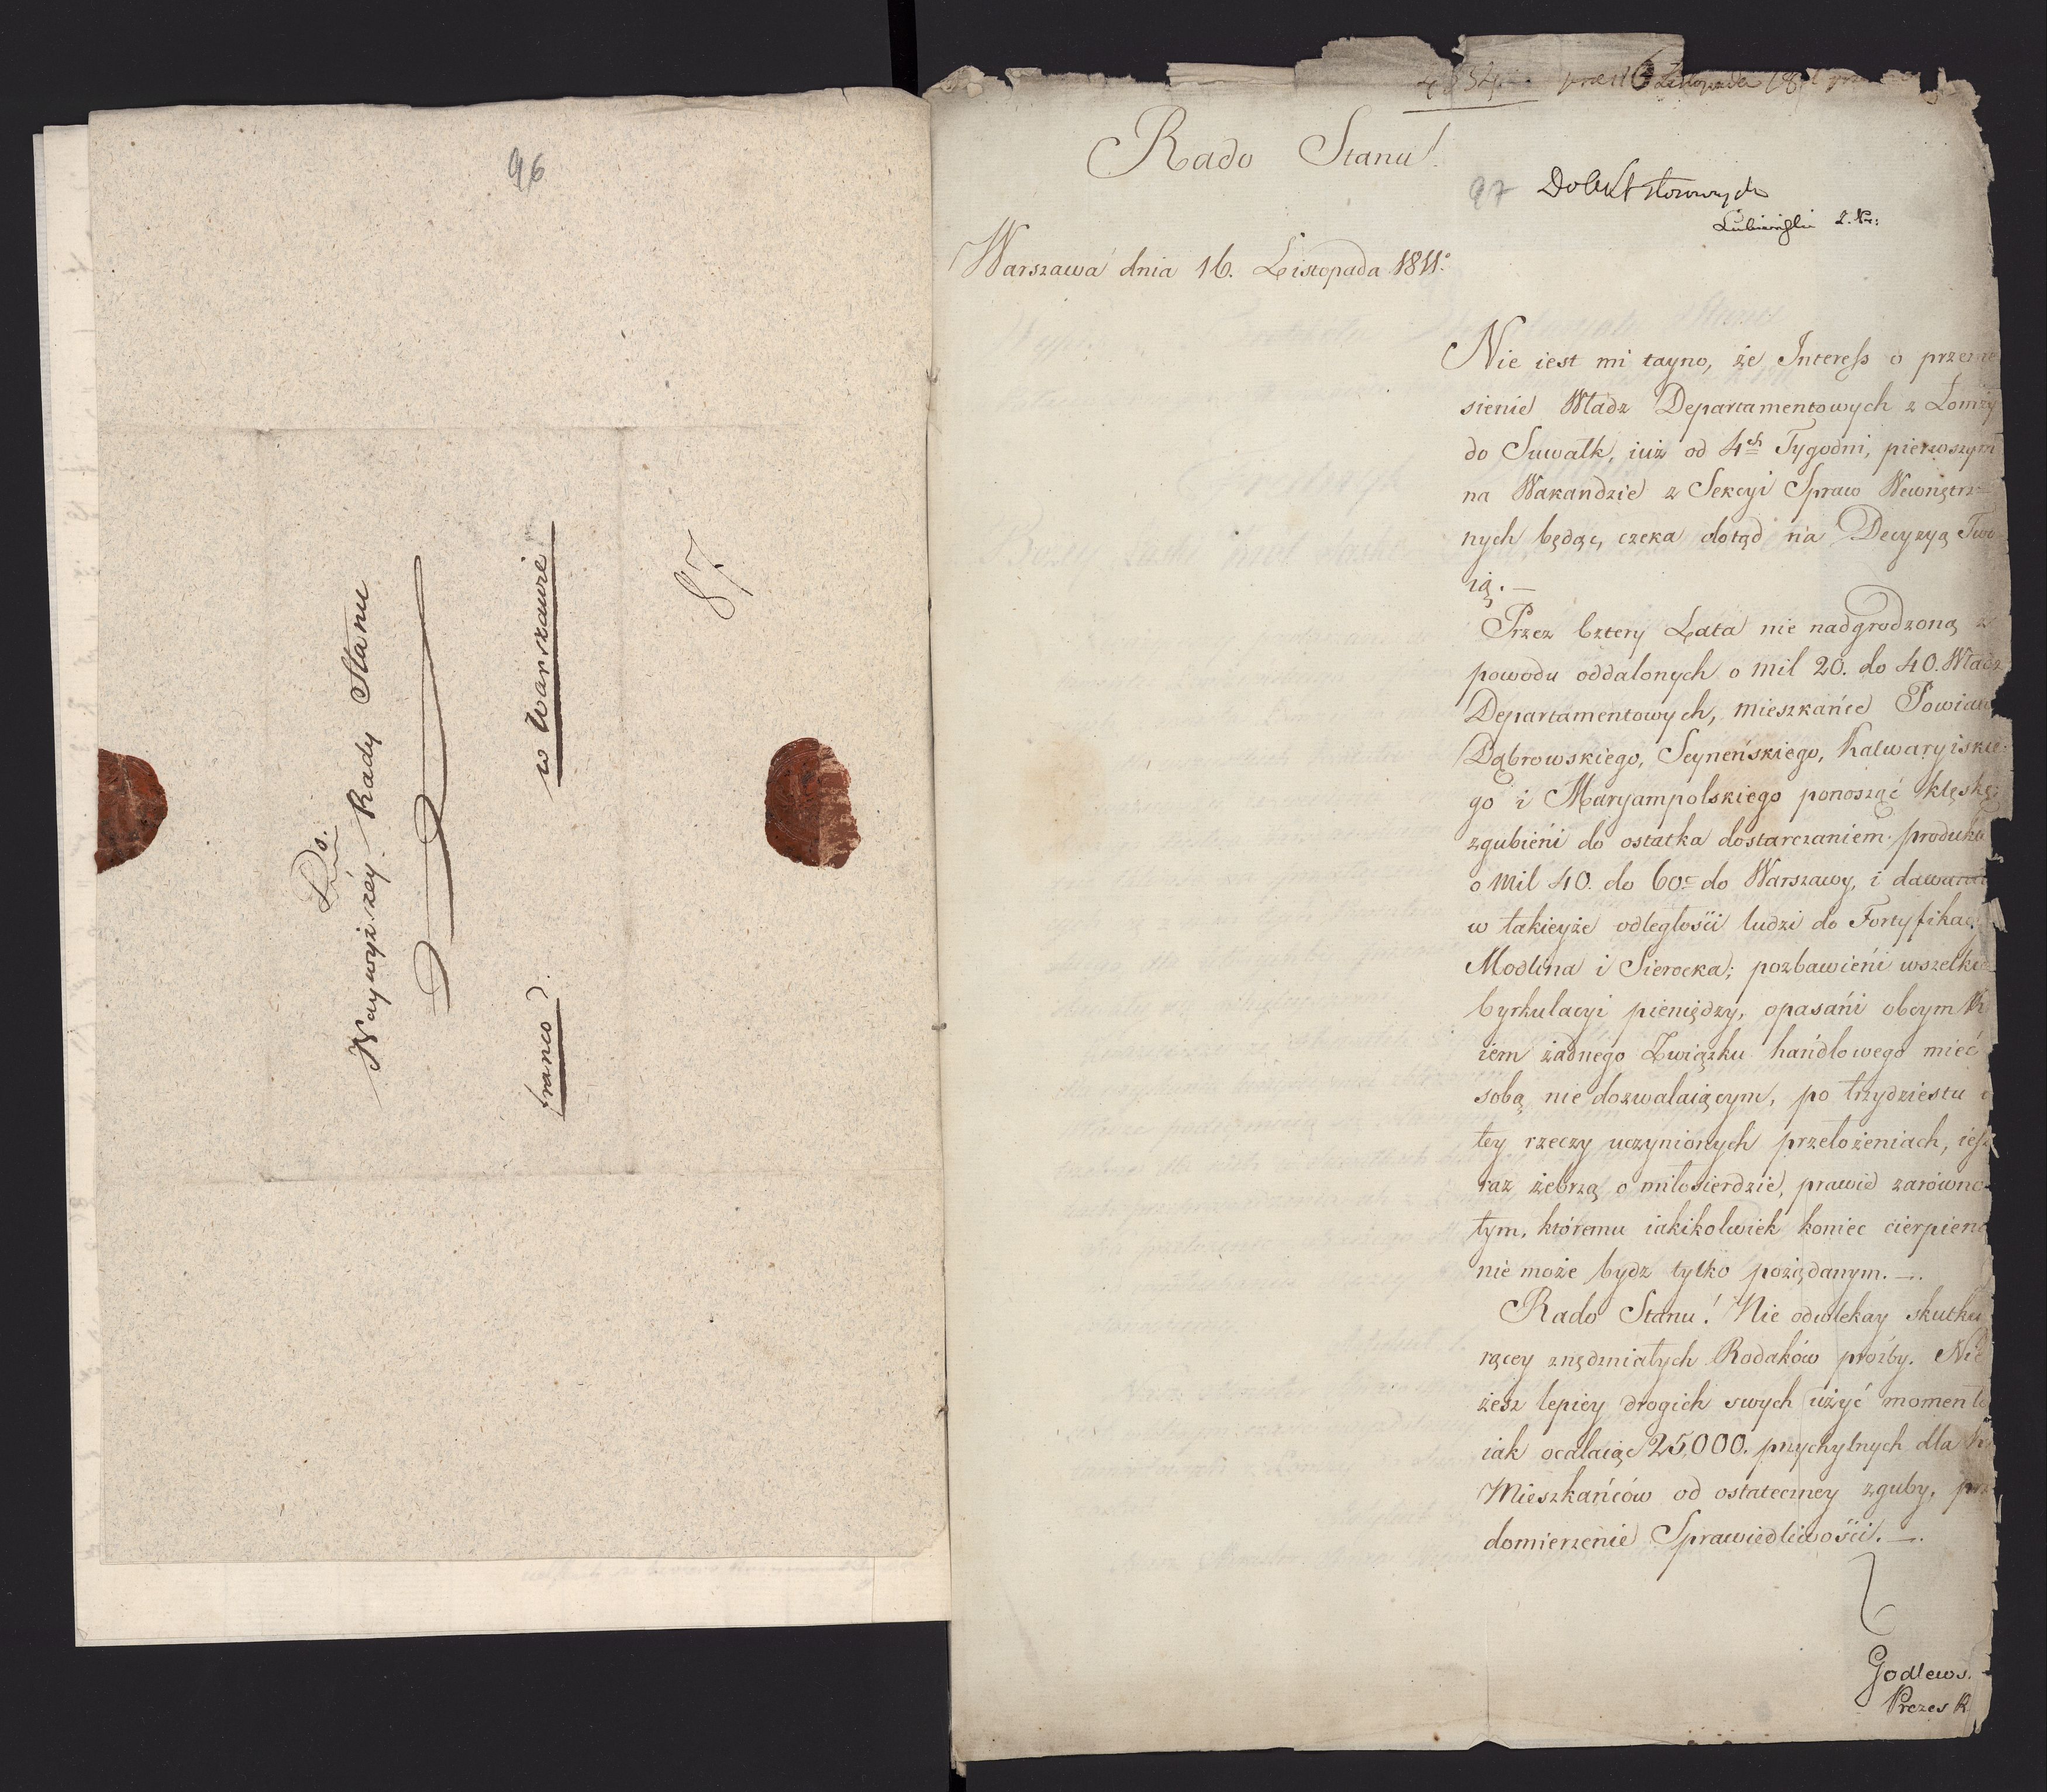 96
Do
Naywyższey Rady Stanu
w Warszawie
franco
87
16 Listopada
Rado Stanu!
97
Warszawa dnia 16. Listopada 1811.
Nie iest mi tayno, że Interess o prze
sienie Władz Departamentowych z Łomży
do Suwałk, iuż od 4ch Tygodni, pierwszym
na Wakandzie z Sekcyi Spraw Wewnętrz
nych będąc, czeka dotąd na Decyzyą Two
ią. —
Przez Cztery Lata nie nadgrodzoną z
powodu oddalonych o mil 20. do 40. Władz
Departamentowych, mieszkańce Powiatu
Dąbrowskiego, Seyneńskiego, Kalwaryiskie-
go i Maryampolskiego ponosząc klęskę,
zgubieni do ostatka dostarczaniem produktó
o mil 40. do 60c do Warszawy, i dawani
w takieyże odległości ludzi do Fortyfikac
Modlina i Sierocka; pozbawieni wszelkie
Cyrkulacyi pieniędzy, opasani obcym Kr
iem żadnego Związku handlowego mieć
sobą nie dozwalaiącym, po trzydziestu
tey rzeczy uczynionych przełożeniach, iesz
raz żebrzą o miłosierdzie, prawie zarówno
tym, któremu iakikolwiek koniec cierpien
nie może bydz tylko pożądanym. —.
Rado Stanu! Nie odwlekay skutku
rącey znędzniałych Rodaków prośby. Nie
żesz lepiey drogich swych użyć momentó
iak ocalaiąc 25,000. przychylnych dla
Mieszkańców od ostateczney zguby, prz
domierzenie Sprawiedliwości. —.
Godlews.
Prezes R